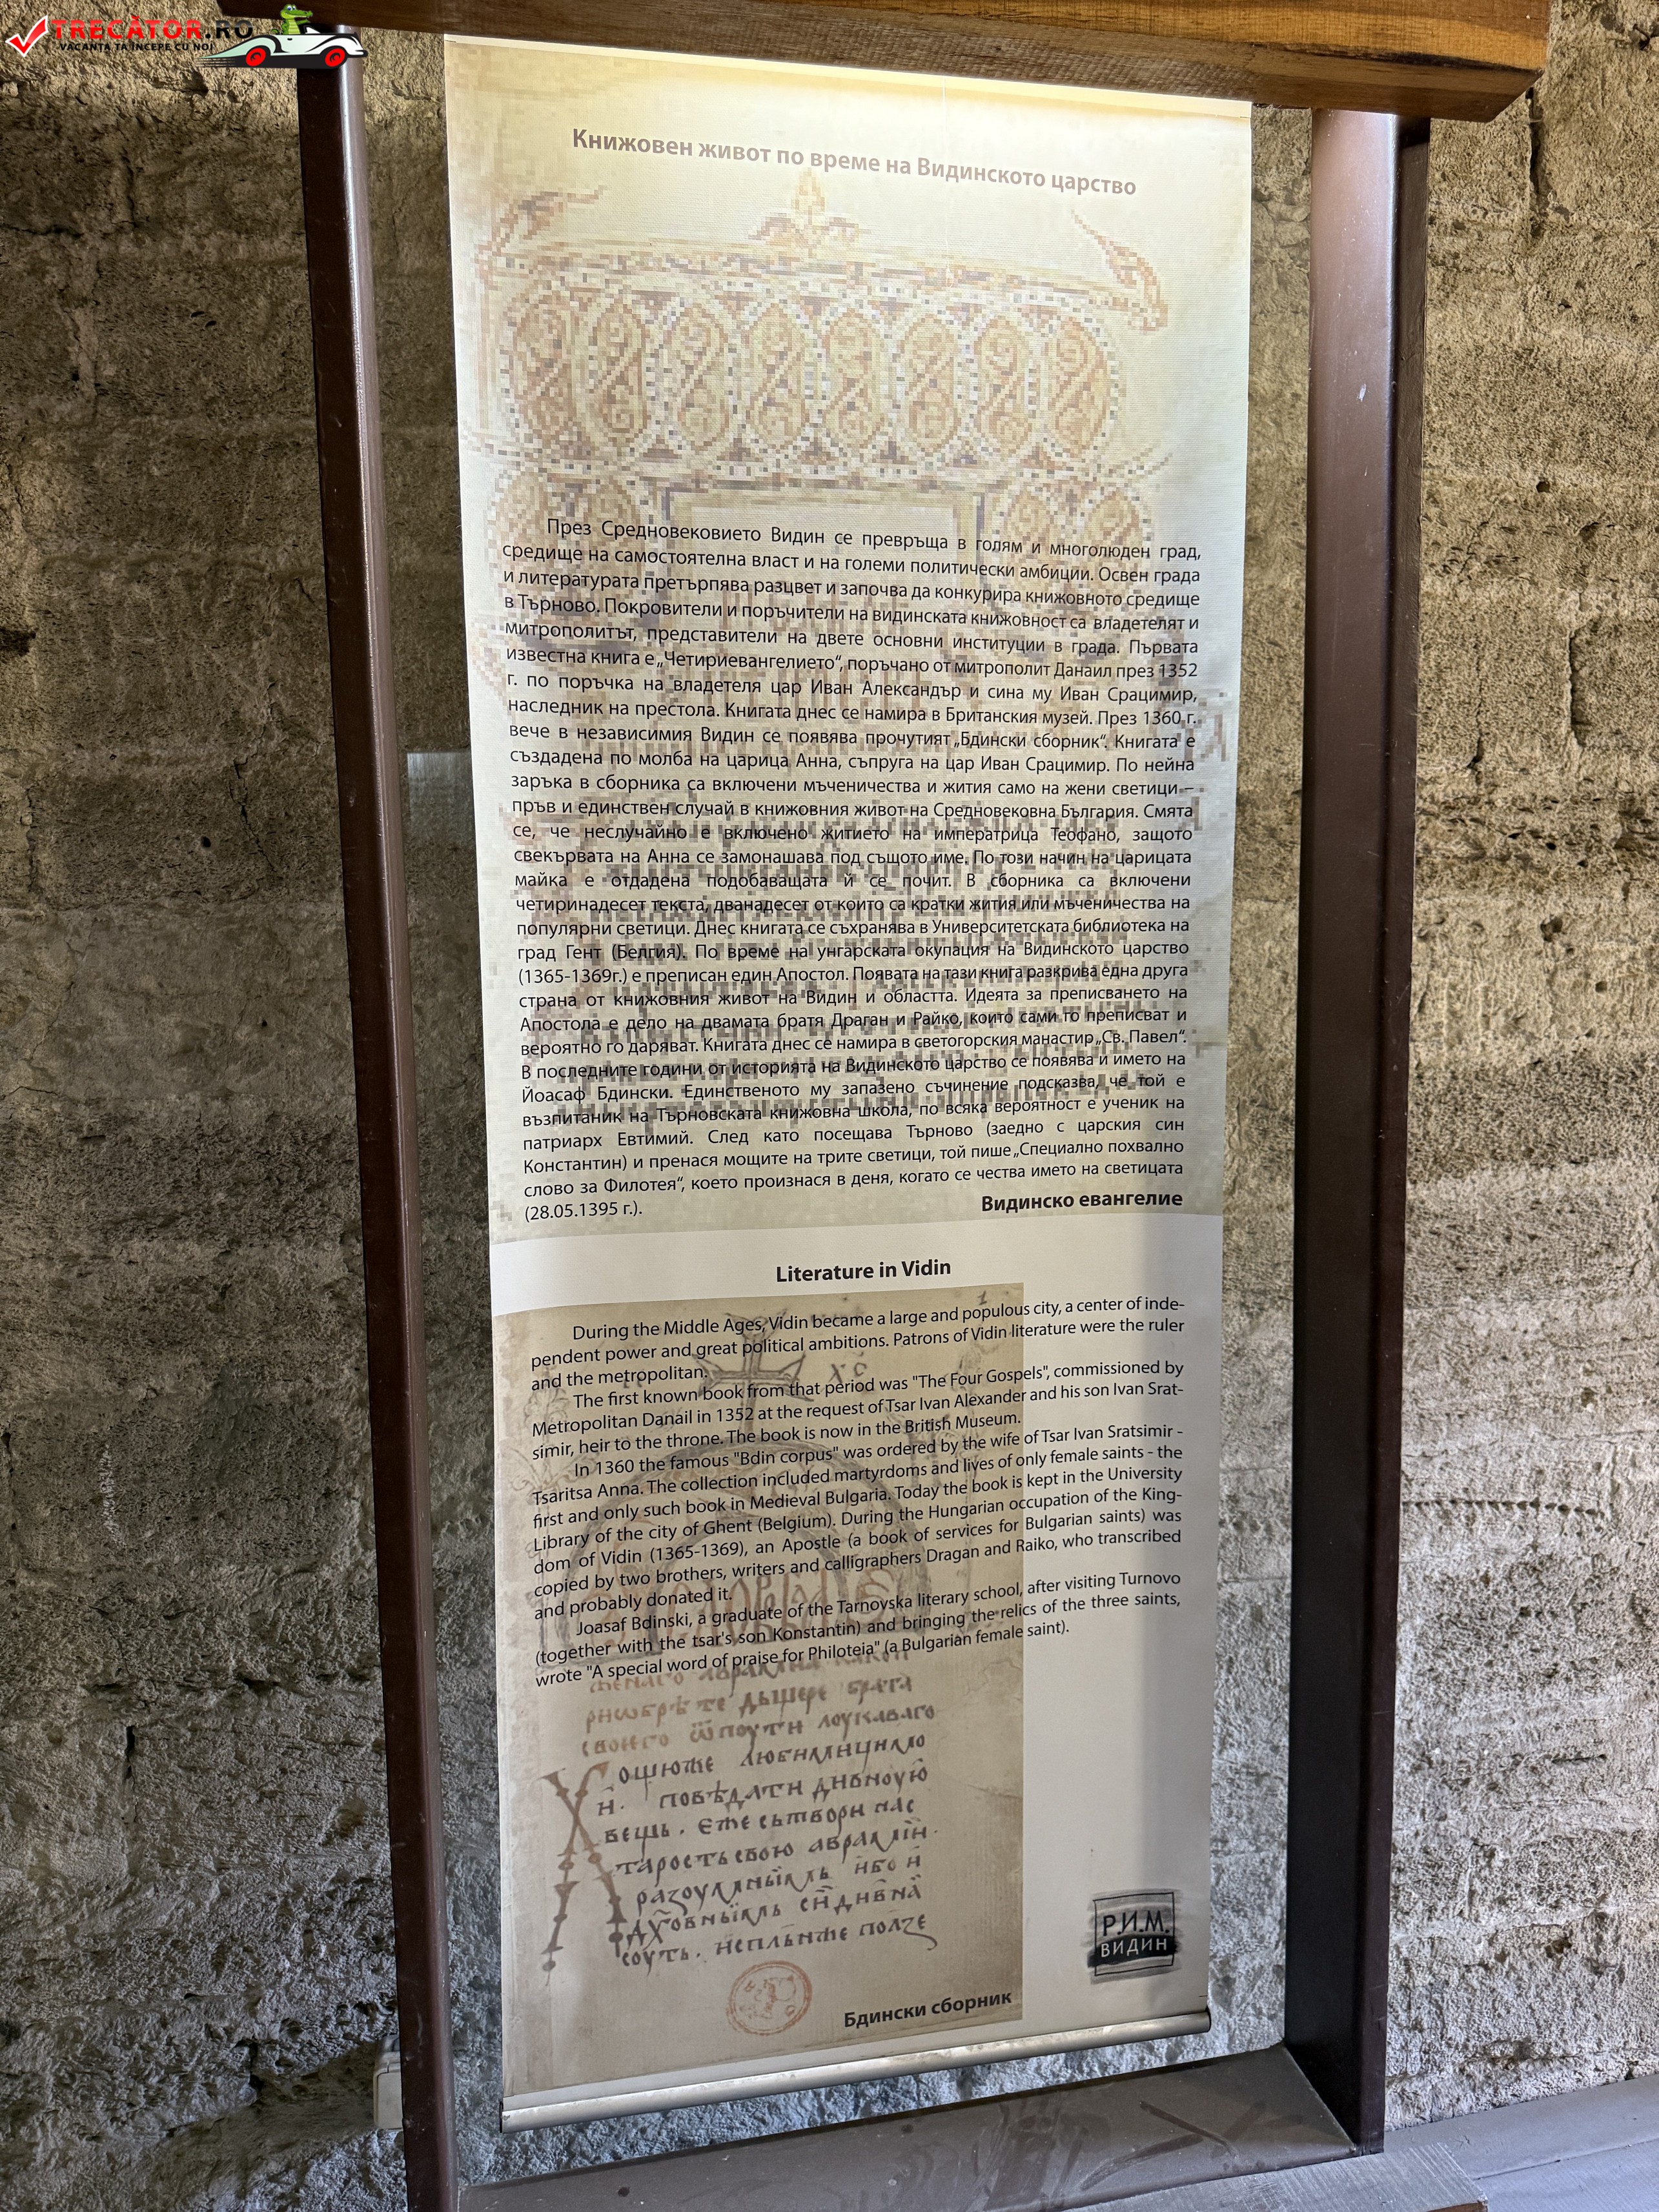 TRECĂTOR.RO
VACANȚA TA ÎNCEPE CU NOI
Книжовен живот по време на Видинското царство
През Средновековието Видин се превръща в голям и многолюден град,
средище на самостоятелна власт и на големи политически амбиции. Освен града
и литературата претърпява разцвет и започва да конкурира книжовното средище
в Търново. Покровители и поръчители на видинската книжовност са владетелят и
митрополитът, представители на двете основни институции в града. Първата
известна книга е „Четириевангелието“, поръчано от митрополит Данаил през 1352
г. по поръчка на владетеля цар Иван Александър и сина му Иван Срацимир,
наследник на престола. Книгата днес се намира в Британския музей. През 1360 г.
вече в независимия Видин се появява прочутият „Бдински сборник“. Книгата е
създадена по молба на царица Анна, съпруга на цар Иван Срацимир. По нейна
заръка в сборника са включени мъченичества и жития само на жени светици –
пръв и единствен случай в книжовния живот на Средновековна България. Смята
се, че неслучайно е включено житието на императрица Теофано, защото
свекървата на Анна се замонашава под същото име. По този начин на царицата
майка е отдадена подобаващата й се почит. В сборника са включени
четиринадесет текста, дванадесет от които са кратки жития или мъченичества на
популярни светици. Днес книгата се съхранява в Университетската библиотека на
град Гент (Белгия). По време на унгарската окупация на Видинското царство
(1365-1369г.) е преписан един Апостол. Появата на тази книга разкрива една друга
страна от книжовния живот на Видин и областта. Идеята за преписването на
Апостола е дело на двамата братя Драган и Райко, които сами го преписват и
вероятно го даряват. Книгата днес се намира в светогорския манастир „Св. Павел“.
В последните години от историята на Видинското царство се появява и името на
Йоасаф Бдински. Единственото му запазено съчинение подсказва, че той е
възпитаник на Търновската книжовна школа, по всяка вероятност е ученик на
патриарх Евтимий. След като посещава Търново (заедно с царския син
Константин) и пренася мощите на трите светици, той пише „Специално похвално
слово за Филотея“, което произнася в деня, когато се чества името на светицата
(28.05.1395 г.).
Видинско евангелие
Literature in Vidin
During the Middle Ages, Vidin became a large and populous city, a center of inde-
pendent power and great political ambitions. Patrons of Vidin literature were the ruler
and the metropolitan.
The first known book from that period was "The Four Gospels", commissioned by
Metropolitan Danail in 1352 at the request of Tsar Ivan Alexander and his son Ivan Srat-
simir, heir to the throne. The book is now in the British Museum.
In 1360 the famous "Bdin corpus" was ordered by the wife of Tsar Ivan Sratsimir -
Tsaritsa Anna. The collection included martyrdoms and lives of only female saints - the
first and only such book in Medieval Bulgaria. Today the book is kept in the University
Library of the city of Ghent (Belgium). During the Hungarian occupation of the King-
dom of Vidin (1365-1369), an Apostle (a book of services for Bulgarian saints) was
copied by two brothers, writers and calligraphers Dragan and Raiko, who transcribed
and probably donated it.
Joasaf Bdinski, a graduate of the Tarnovska literary school, after visiting Turnovo
(together with the tsar's son Konstantin) and bringing the relics of the three saints,
wrote "A special word of praise for Philoteia" (a Bulgarian female saint).
Р.И.М.
ВИДИН
Бдински сборник